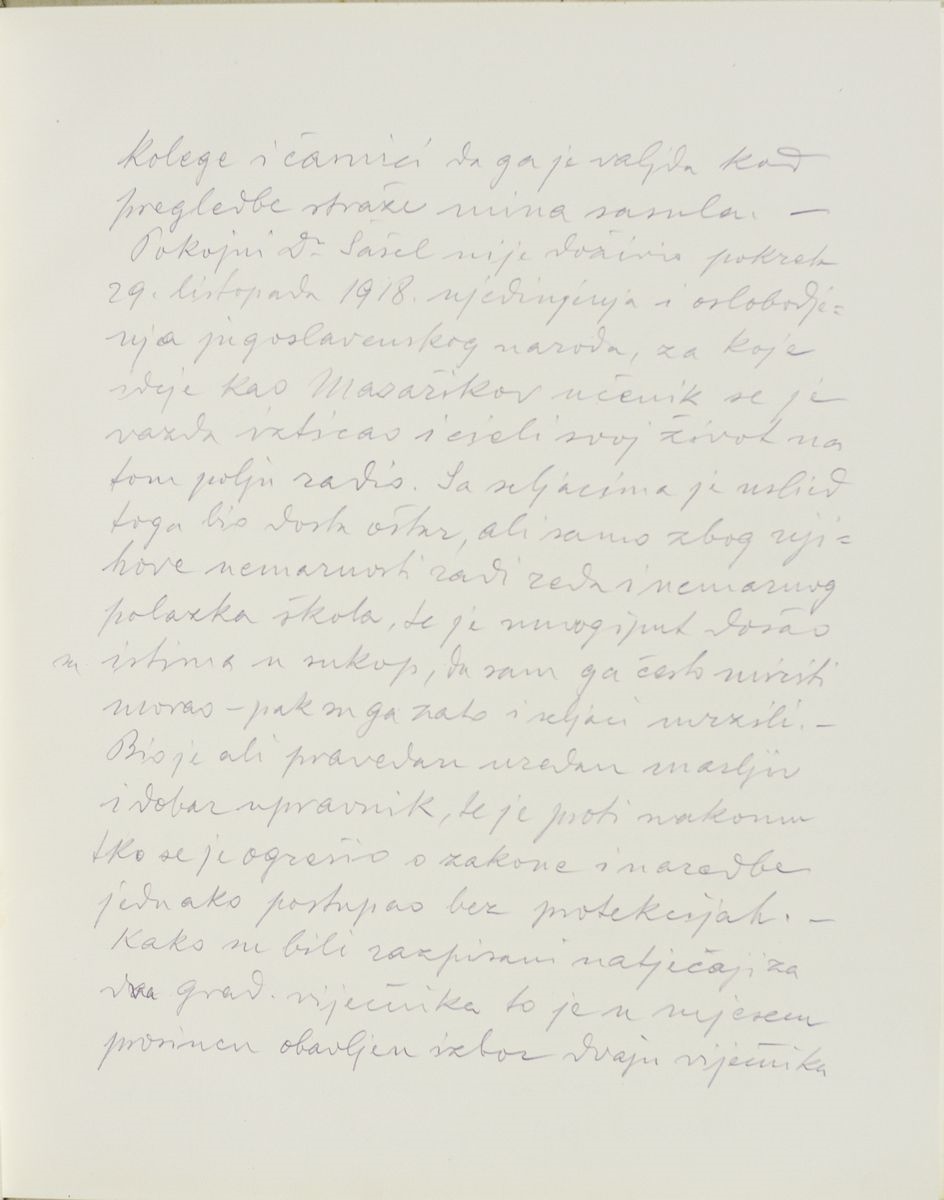 kolege i časnici da ga je valjda kod
pregledbe straže mina sasula. —
Pokojni Dr. Šašel nije doživio pokret
29. listopada 1918. ujedinjenja i oslobodje=
nja jugoslavenskog naroda, za koje
ideje kao Masarikov učenik se je
vazda izticao i cieli svoj život na
tom polju radio. Sa seljacima je uslied
toga bio dosta oštar, ali samo zbog nji=
hove nemarnosti radi reda i nemarnog
polazka škola, te je mnogiput došao
sa istima u sukop, da sam ga često miriti
morao – pak su ga zato i seljaci mrzili. –
Bio je ali pravedan uredan marljiv
i dobar upravnik, te je proti svakomu
tko se je ogrešio o zakone i naredbe
jednako postupao bez protekcijah. —
Kako su bili razpisani natječaji za
dva grad. viječnika to je u mjesecu
prosincu obavljen izbor dvaju viječnika